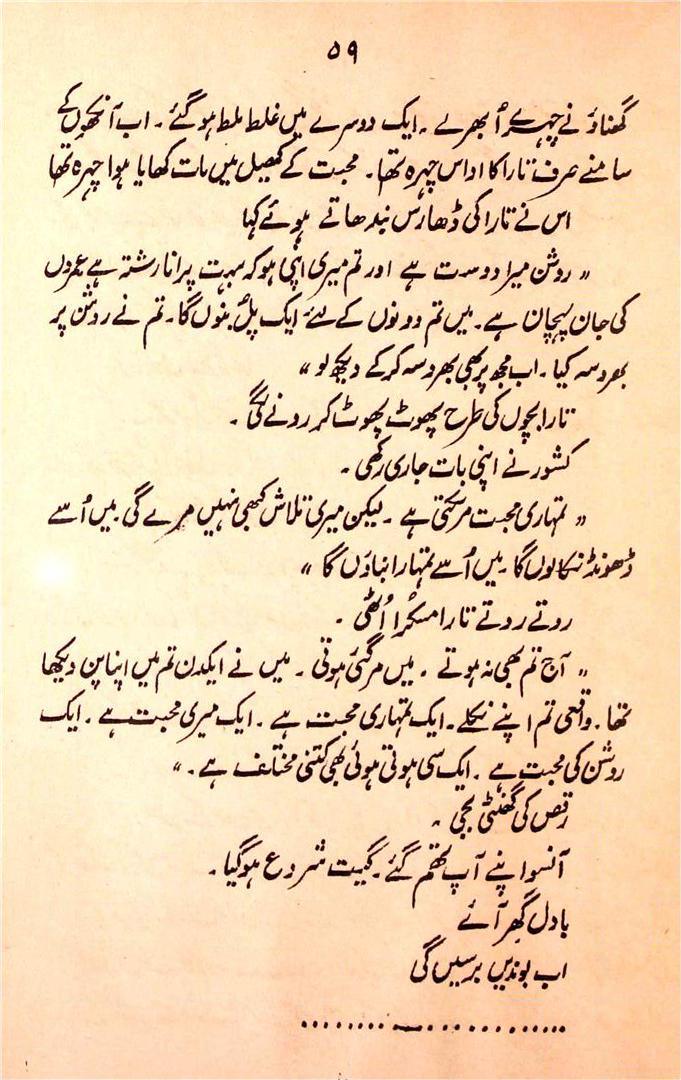 ۵۹
گھناؤنے چہرے اُبھرے ۔ ایک دوسرے میں غلط ملط ہو گئے ۔ اب آنکھوں کے
سامنے صرف تارا کا اداس چہرہ تھا۔ محبت کے کھیل میں مات کھایا ہوا چہرہ تھا
اس نے تارا کی ڈھارس بندھاتے ہوئے کہا
" روشن میرا دوست ہے اور تم میری اپنی ہو کہ بہت پرانا رشتہ ہے عمروں
کی جان پہچان ہے۔ میں تم دونوں کے لئے ایک پُل بنوں گا۔ تم نے روشن پر
بھروسہ کیا ۔ اب مجھ پر بھی بھروسہ کر کے دیکھ لو "
تارا بچوں کی طرح پھوٹ پھوٹ کر رونے لگی ۔
کشور نے اپنی بات جاری رکھی ۔
" تمہاری محبت مر سکتی ہے ۔ لیکن میری تلاش کبھی نہیں مرے گی ۔ میں اُسے
ڈھونڈ نکالوں گا ۔ میں اُسے تمہارا بناؤں گا "
روتے روتے تارا مسکرا اُٹھی ۔
" آج تم بھی نہ ہوتے ۔ میں مر گئی ہوتی ۔ میں نے ایکدن تم میں اپنا پن دیکھا
تھا ۔ واقعی تم اپنے نکلے ۔ ایک تمہاری محبت ہے ۔ ایک میری محبت ہے ۔ ایک
روشن کی محبت ہے ۔ ایک سی ہوتی ہوئی بھی کتنی مختلف ہے ۔ "
رقص کی گھنٹی بجی ۔
آنسو اپنے آپ تھم گئے ۔ گیت شروع ہو گیا ۔
بادل گھر آئے
اب بوندیں برسیں گی